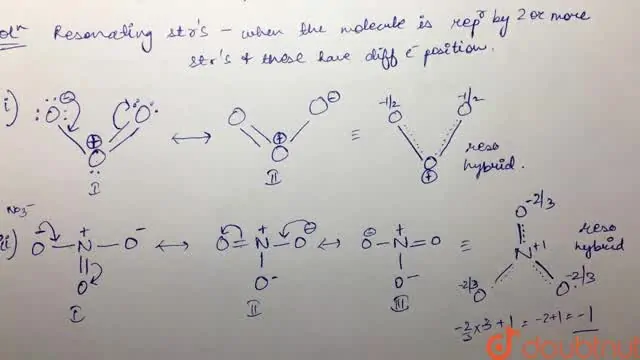 Solⁿ Resonating str's – when the molecule is repʳ by 2 or more
str's & these have diff e⁻ position.
i) :Ö:⊖ Ö: ⊕ Ö I ↔ O O⊖ ⊕ O II ≡ -1/2 O -1/2 O ⊕ O reso
hybrid.
NO₃⁻
ii) O⁻ – N⁺ – O⁻ O I ↔ O = N⁺ – O⊖ O⁻ II ↔ ⊖O – N⁺ = O O⁻ III ≡ O-2/3 N+1 -2/3 O O-2/3 reso
hybrid
-2/3 x 3 + 1 = -2+1 = -1
doubtnut